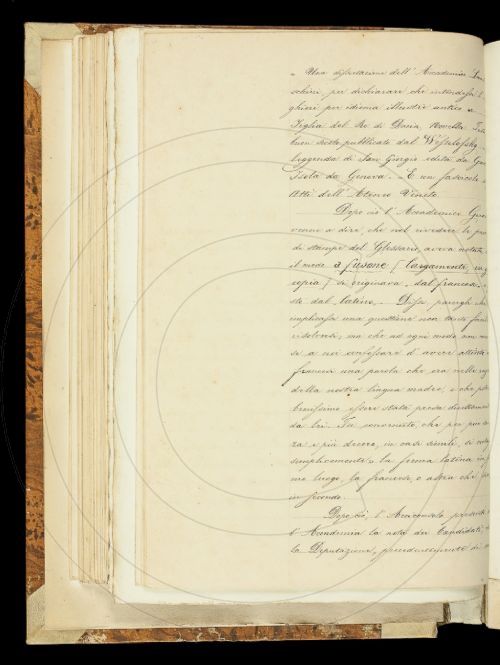 „ Una dissertazione dell' Accademico
schini, per dichiarare che intendesse
ghieri per idioma illustre antico
Figlia del Re di Dacia, Novella
buon secolo pubblicata dal Wesselofsky
Leggenda di San Giorgio edita da
Isola da Genova. - E un fascicolo
Atti dell' Ateneo Veneto.
Dopo ciò l' Accademico
venne a dire, che nel rivedere le
di stampa del Glossario, aveva notato
il modo a fusone (largamente, in
copia) si originava, dal francese,
sto dal latino. - Disse, parergli che
implicasse una questione non tanto
risolversi, ma che ad ogni modo
se a noi confessare d' avere attinto
francesi una parola che era nelle
della nostra lingua madre, e che
benissimo essere stata presa direttamente
da lei. Fu convenuto, che per
za e più decoro, in casi simili, si
semplicemente la forma latina in
mo luogo, la francese o altra che
in secondo.
Dopo ciò, l' Arciconsolo
l' Accademia la nota dei Candidati,
la Deputazione, precedentemente